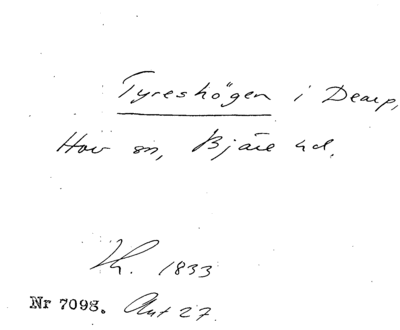 Tyreshögen i Dearp,
Hov sn, Bjäre hd.
Th. 1833
Nr 7098. Ant 27